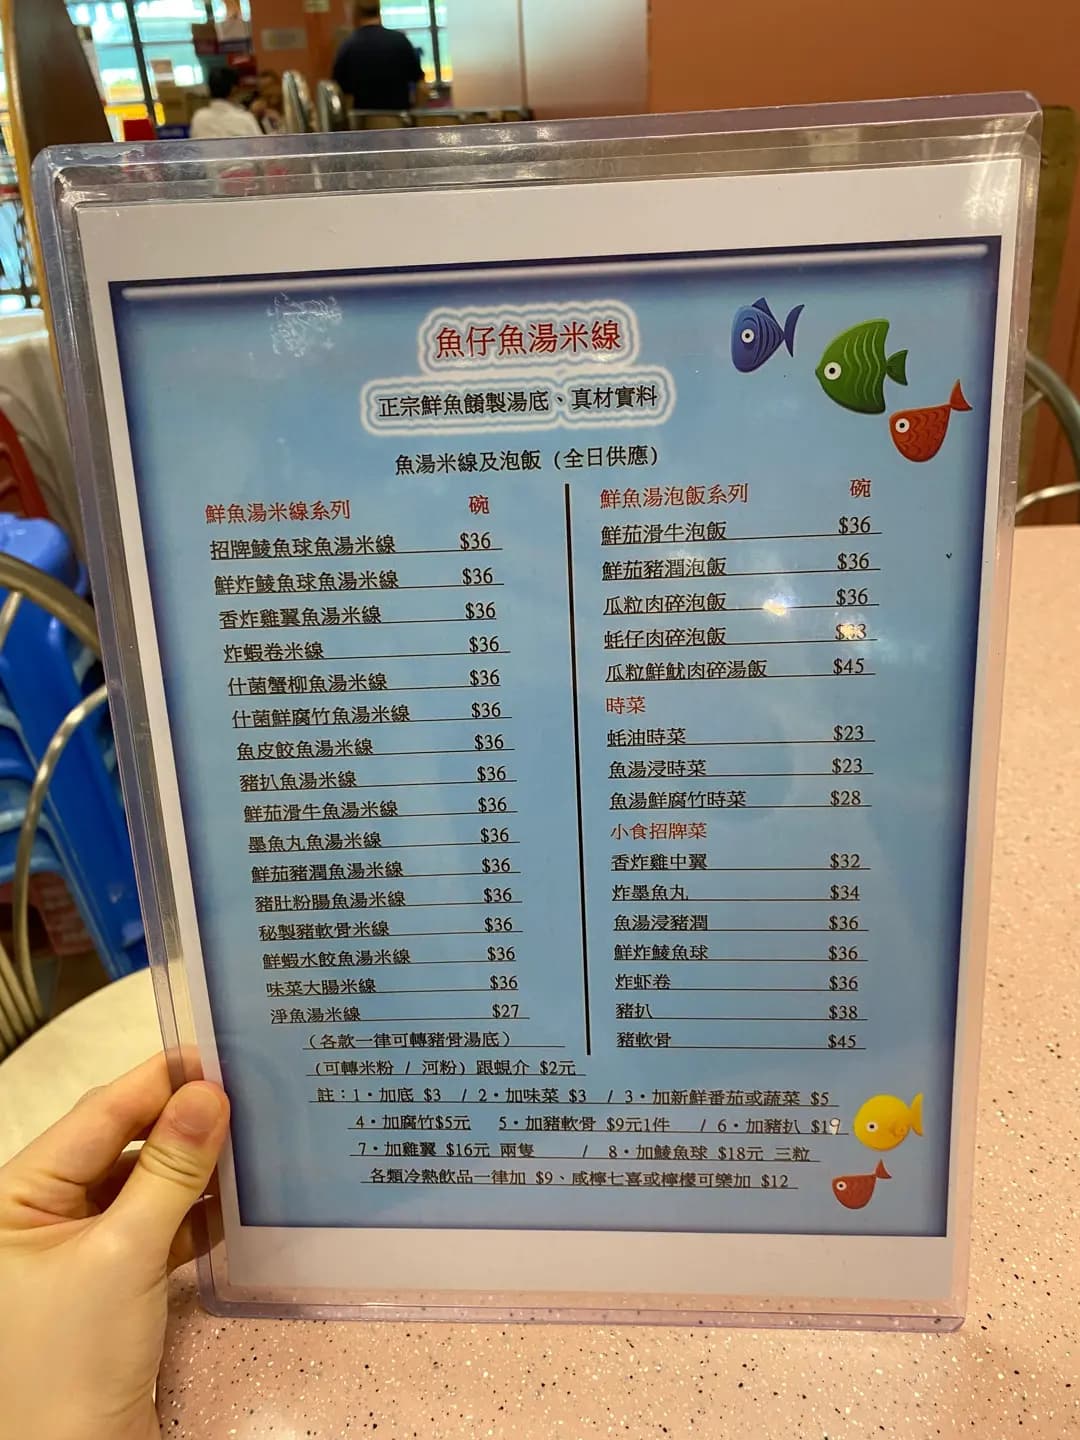 魚仔魚湯米線
正宗鮮魚餚製湯底、真材實料
魚湯米線及泡飯 (全日供應)
鮮魚湯米線系列 碗
招牌鯪魚球魚湯米線 $36
鮮炸鯪魚球魚湯米線 $36
香炸雞翼魚湯米線 $36
炸蝦卷米線 $36
什菌蟹柳魚湯米線 $36
什菌鮮腐竹魚湯米線 $36
魚皮餃魚湯米線 $36
豬扒魚湯米線 $36
鮮茄滑牛魚湯米線 $36
墨魚丸魚湯米線 $36
鮮茄豬潤魚湯米線 $36
豬肚粉腸魚湯米線 $36
秘製豬軟骨米線 $36
鮮蝦水餃魚湯米線 $36
味菜大腸米線 $36
淨魚湯米線 $27
(各款一律可轉豬骨湯底)
鮮魚湯泡飯系列 碗
鮮茄滑牛泡飯 $36
鮮茄豬潤泡飯 $36
瓜粒肉碎泡飯 $36
蚝仔肉碎泡飯
瓜粒鮮魷肉碎湯飯 $45
時菜
蚝油時菜 $23
魚湯浸時菜 $23
魚湯鮮腐竹時菜 $28
小食招牌菜
香炸雞中翼 $32
炸墨魚丸 $34
魚湯浸豬潤 $36
鮮炸鯪魚球 $36
炸虾卷 $36
豬扒 $38
豬軟骨 $45
(可轉米粉 / 河粉) 跟蜆介 $2元
註:1·加底 $3 / 2·加味菜 $3 / 3·加新鮮番茄或蔬菜 $5
4·加腐竹$5元 5·加豬軟骨 $9元1件 / 6·加豬扒 $19
7·加雞翼 $16元 兩隻 / 8·加鯪魚球 $18元 三粒
各類冷熱飲品一律加 $9、咸檸七喜或檸檬可樂加 $12